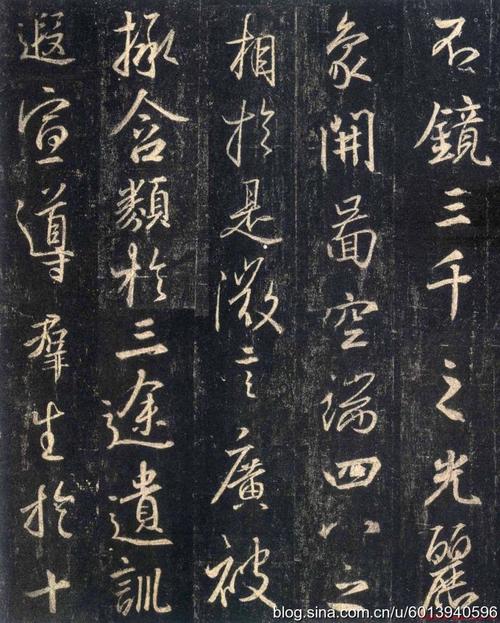 不鏡三千之光麗
象開圖空端四八之
相於是微言廣被
拯含類於三途遺訓
遐宣導羣生於十
blog.sina.com.cn/u/6013940596